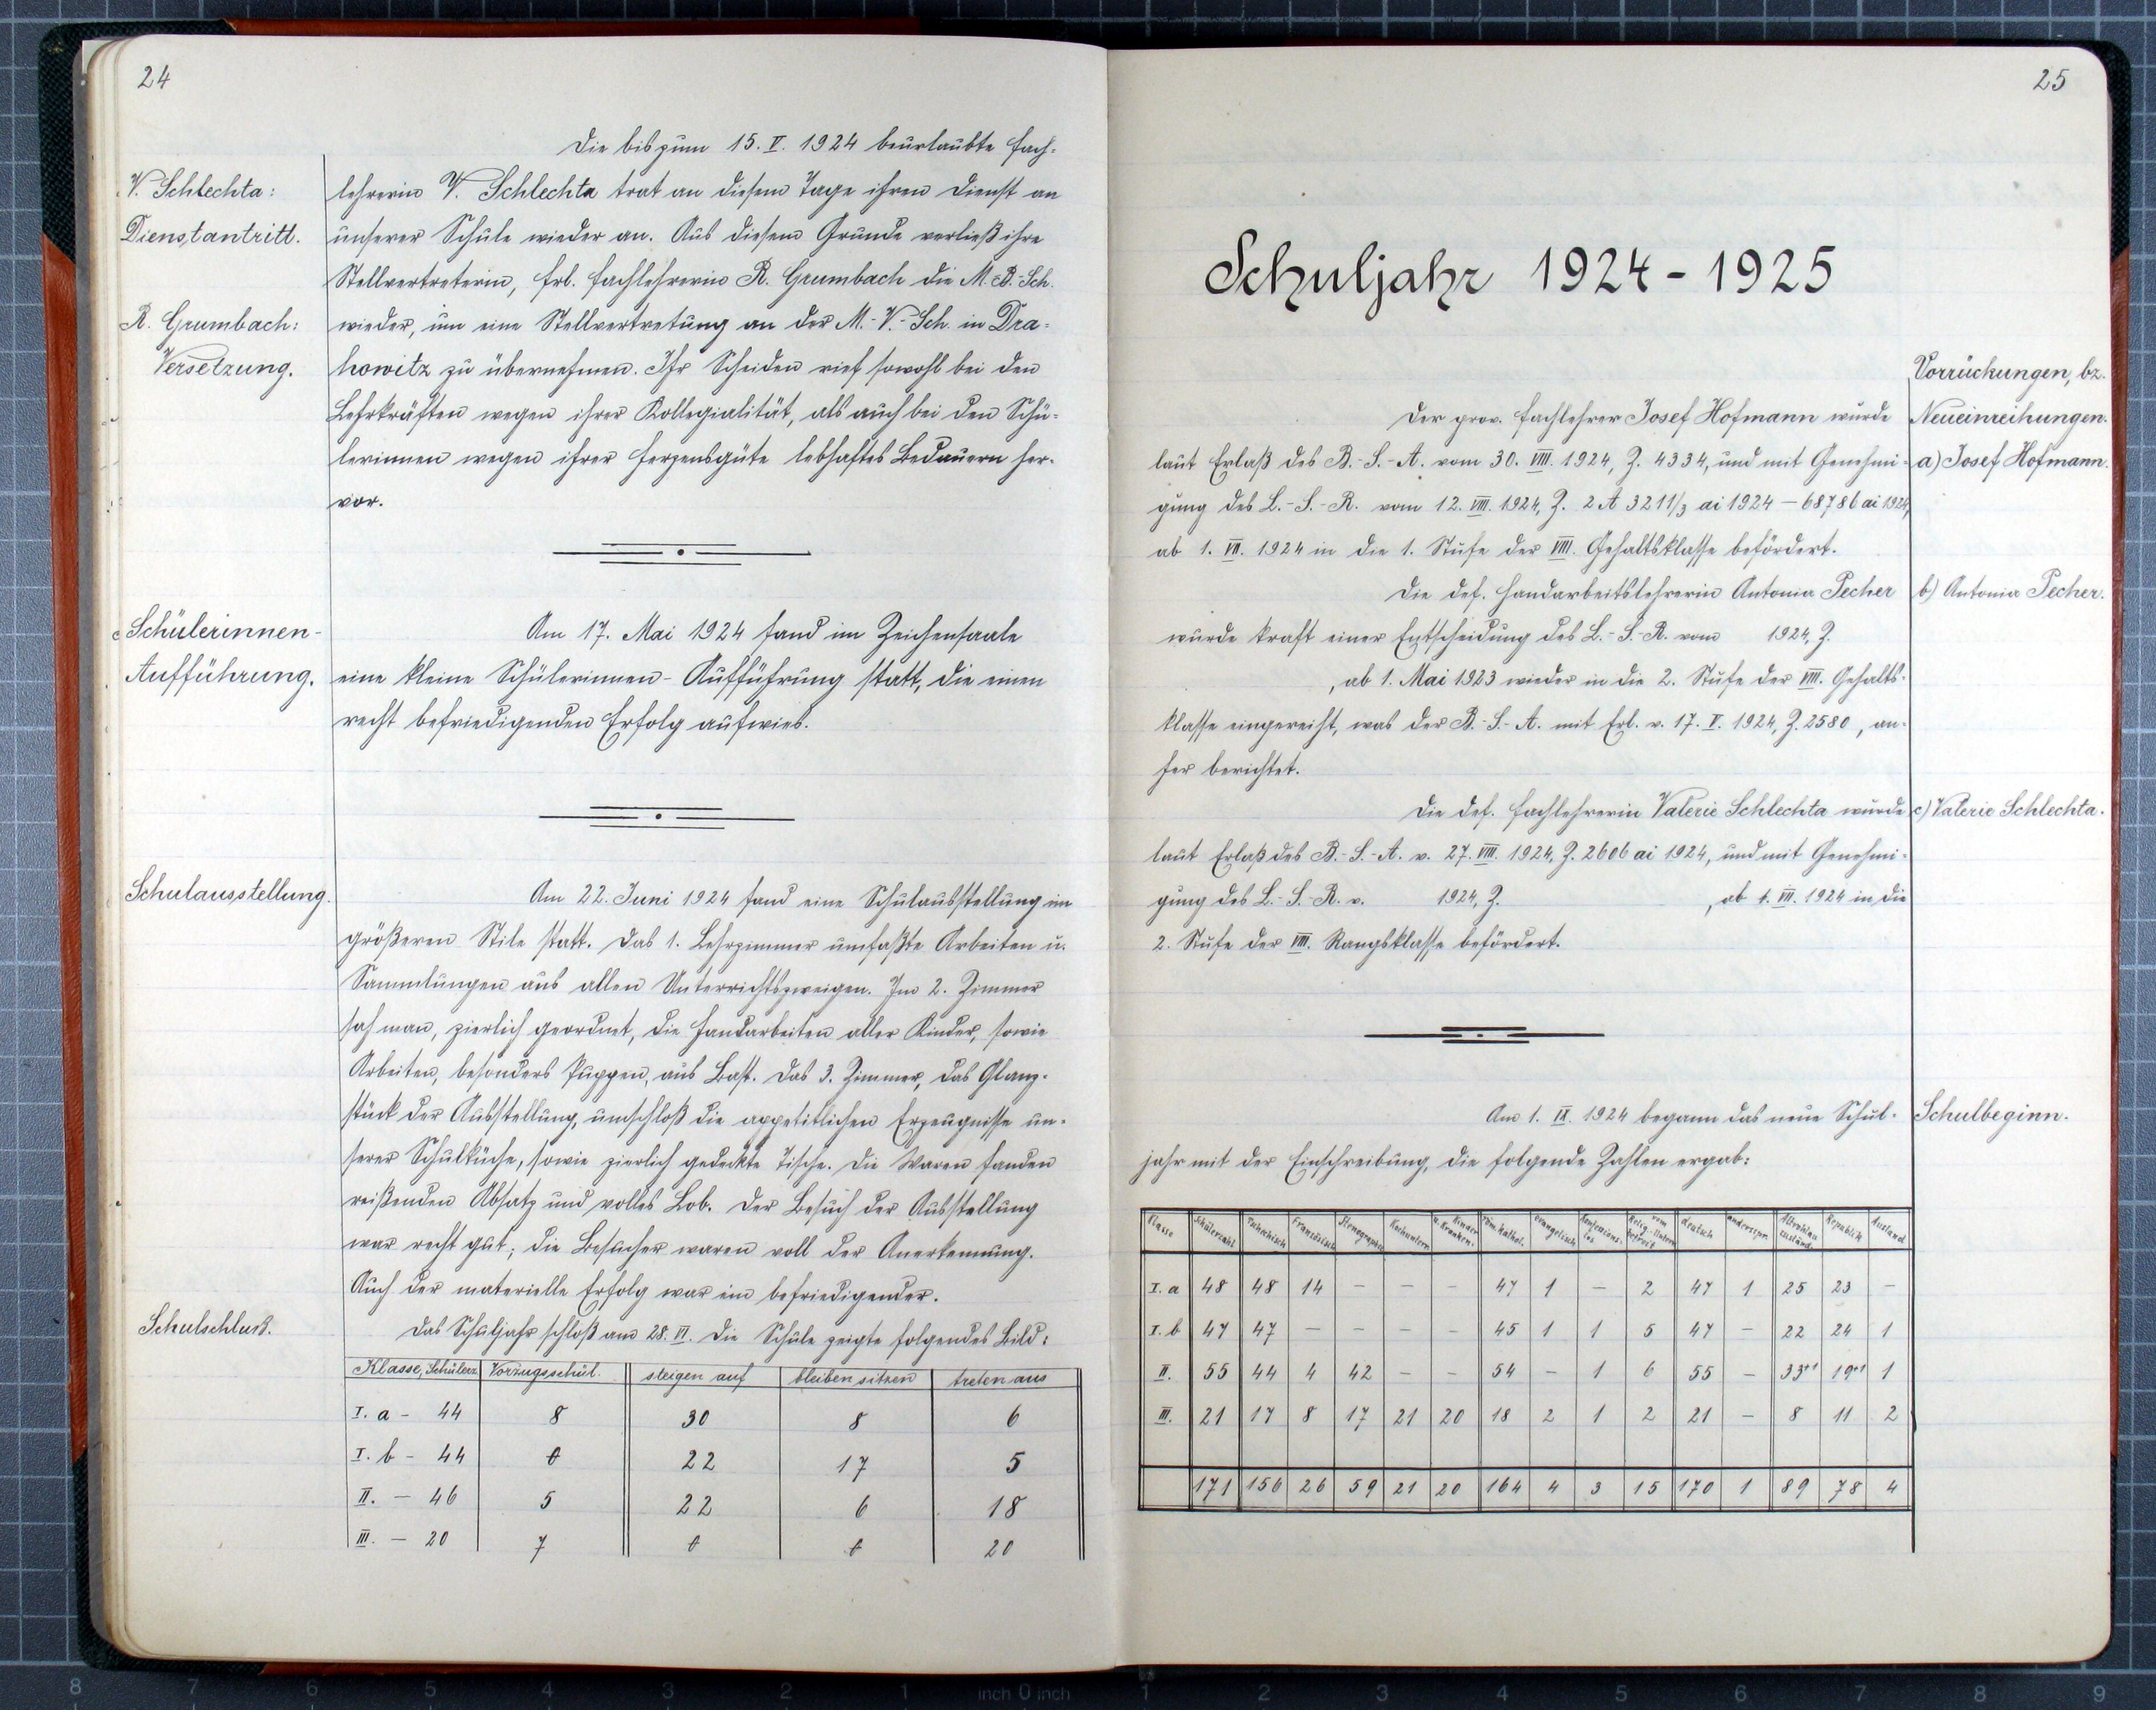 24
Die bis zum 15. V. 1924 beurlaubte Fach-
V. Schlechta:
lehrerin V. Schlechta trat an diesem Tage ihren Dienst an
Dienstantritt.
unserer Schule wieder an. Aus diesem Grunde verließ ihre
Stellvertreterin, Frl. Fachlehrerin R. Grumbach die M.-B.-Sch.
R. Grumbach:
wieder, um eine Stellvertretung an der M.-V.-Sch. in Dra-
Versetzung.
howitz zu übernehmen. Ihr Scheiden rief sowohl bei den
Lehrkräften wegen ihrer Kollegialität, als auch bei den Schü-
lerinnen wegen ihrer Herzensgüte lebhaftes Bedauern her-
vor.
Schülerinnen-
Am 17. Mai 1924 fand im Zeichensaale
Aufführung.
eine kleine Schülerinnen-Aufführung statt, die einen
recht befriedigenden Erfolg aufwies.
Schulausstellung.
Am 22. Juni 1924 fand eine Schulausstellung im
größeren Stile statt. Das 1. Lehrzimmer umfaßte Arbeiten u.
Sammlungen aus allen Unterrichtszweigen. Im 2. Zimmer
sah man, zierlich geordnet, die Handarbeiten aller Kinder, sowie
Arbeiten, besonders Puppen, aus Bast. Das 3. Zimmer, das Glanz-
stück der Ausstellung, umschloß die appetitlichen Erzeugnisse un-
serer Schulküche, sowie zierlich gedeckte Tische. Die Waren fanden
reißenden Absatz und volles Lob. Der Besuch der Ausstellung
war recht gut; die Besucher waren voll der Anerkennung.
Auch der materielle Erfolg war ein befriedigender.
Schulschluß.
Das Schuljahr schloß am 28. VI. Die Schule zeigte folgendes Bild:
Klasse, Schülerz. Vorzugsschül. steigen auf bleiben sitzen treten aus
I. a - 44 8 30 8 6
I. b - 44 0 22 17 5
II. - 46 5 22 6 18
III. - 20 7 0 0 20
25
Schuljahr 1924 - 1925
Vorrückungen, bz.
Der prov. Fachlehrer Josef Hofmann wurde
Neueinreihungen.
laut Erlaß des B.-S.-A. vom 30. VIII. 1924, Z. 4334, und mit Genehmi-
a) Josef Hofmann.
gung des L.-S.-R. vom 12. VIII. 1924, Z. 2 A 3211/3 ai 1924 - 68786 ai 1924,
ab 1. VII. 1924 in die 1. Stufe der VIII. Gehaltsklasse befördert.
Die def. Handarbeitslehrerin Antonia Pecher
b) Antonia Pecher.
wurde kraft einer Entscheidung des L.-S.-R. vom 1924, Z.
, ab 1. Mai 1923 wieder in die 2. Stufe der VIII. Gehalts-
klasse eingereiht, was der B.-S.-A. mit Erl. v. 17. V. 1924, Z. 2580, an-
her berichtet.
Die def. Fachlehrerin Valerie Schlechta wurde
c) Valerie Schlechta.
laut Erlaß des B.-S.-A. v. 27. VIII. 1924, Z. 2606 ai 1924, und mit Genehmi-
gung des L.-S.-R. v. 1924, Z. , ab 1. VII. 1924 in die
2. Stufe der VIII. Rangsklasse befördert.
Am 1. IX. 1924 begann das neue Schul-
Schulbeginn.
jahr mit der Einschreibung, die folgende Zahlen ergab:
Klasse Schülerzahl Tschechisch Französisch Stenographie Kochunterr. Kinder u. Kranken. röm. kathol. evangelisch konfessions-los vom Relig.-Unterr. befreit deutsch anderspr. Republik Ausland
I. a 48 48 14 - - - 47 1 - 2 47 1 25 23 -
I. b 47 47 - - - - 45 1 1 5 47 - 22 24 1
II. 55 44 4 42 - - 54 - 1 6 55 - 33+1 19+1 1
III. 21 17 8 17 21 20 18 2 1 2 21 - 8 11 2
171 156 26 59 21 20 164 4 3 15 170 1 89 78 4
8 7 6 5 4 3 2 1 inch 0 inch 1 2 3 4 5 6 7 8 9